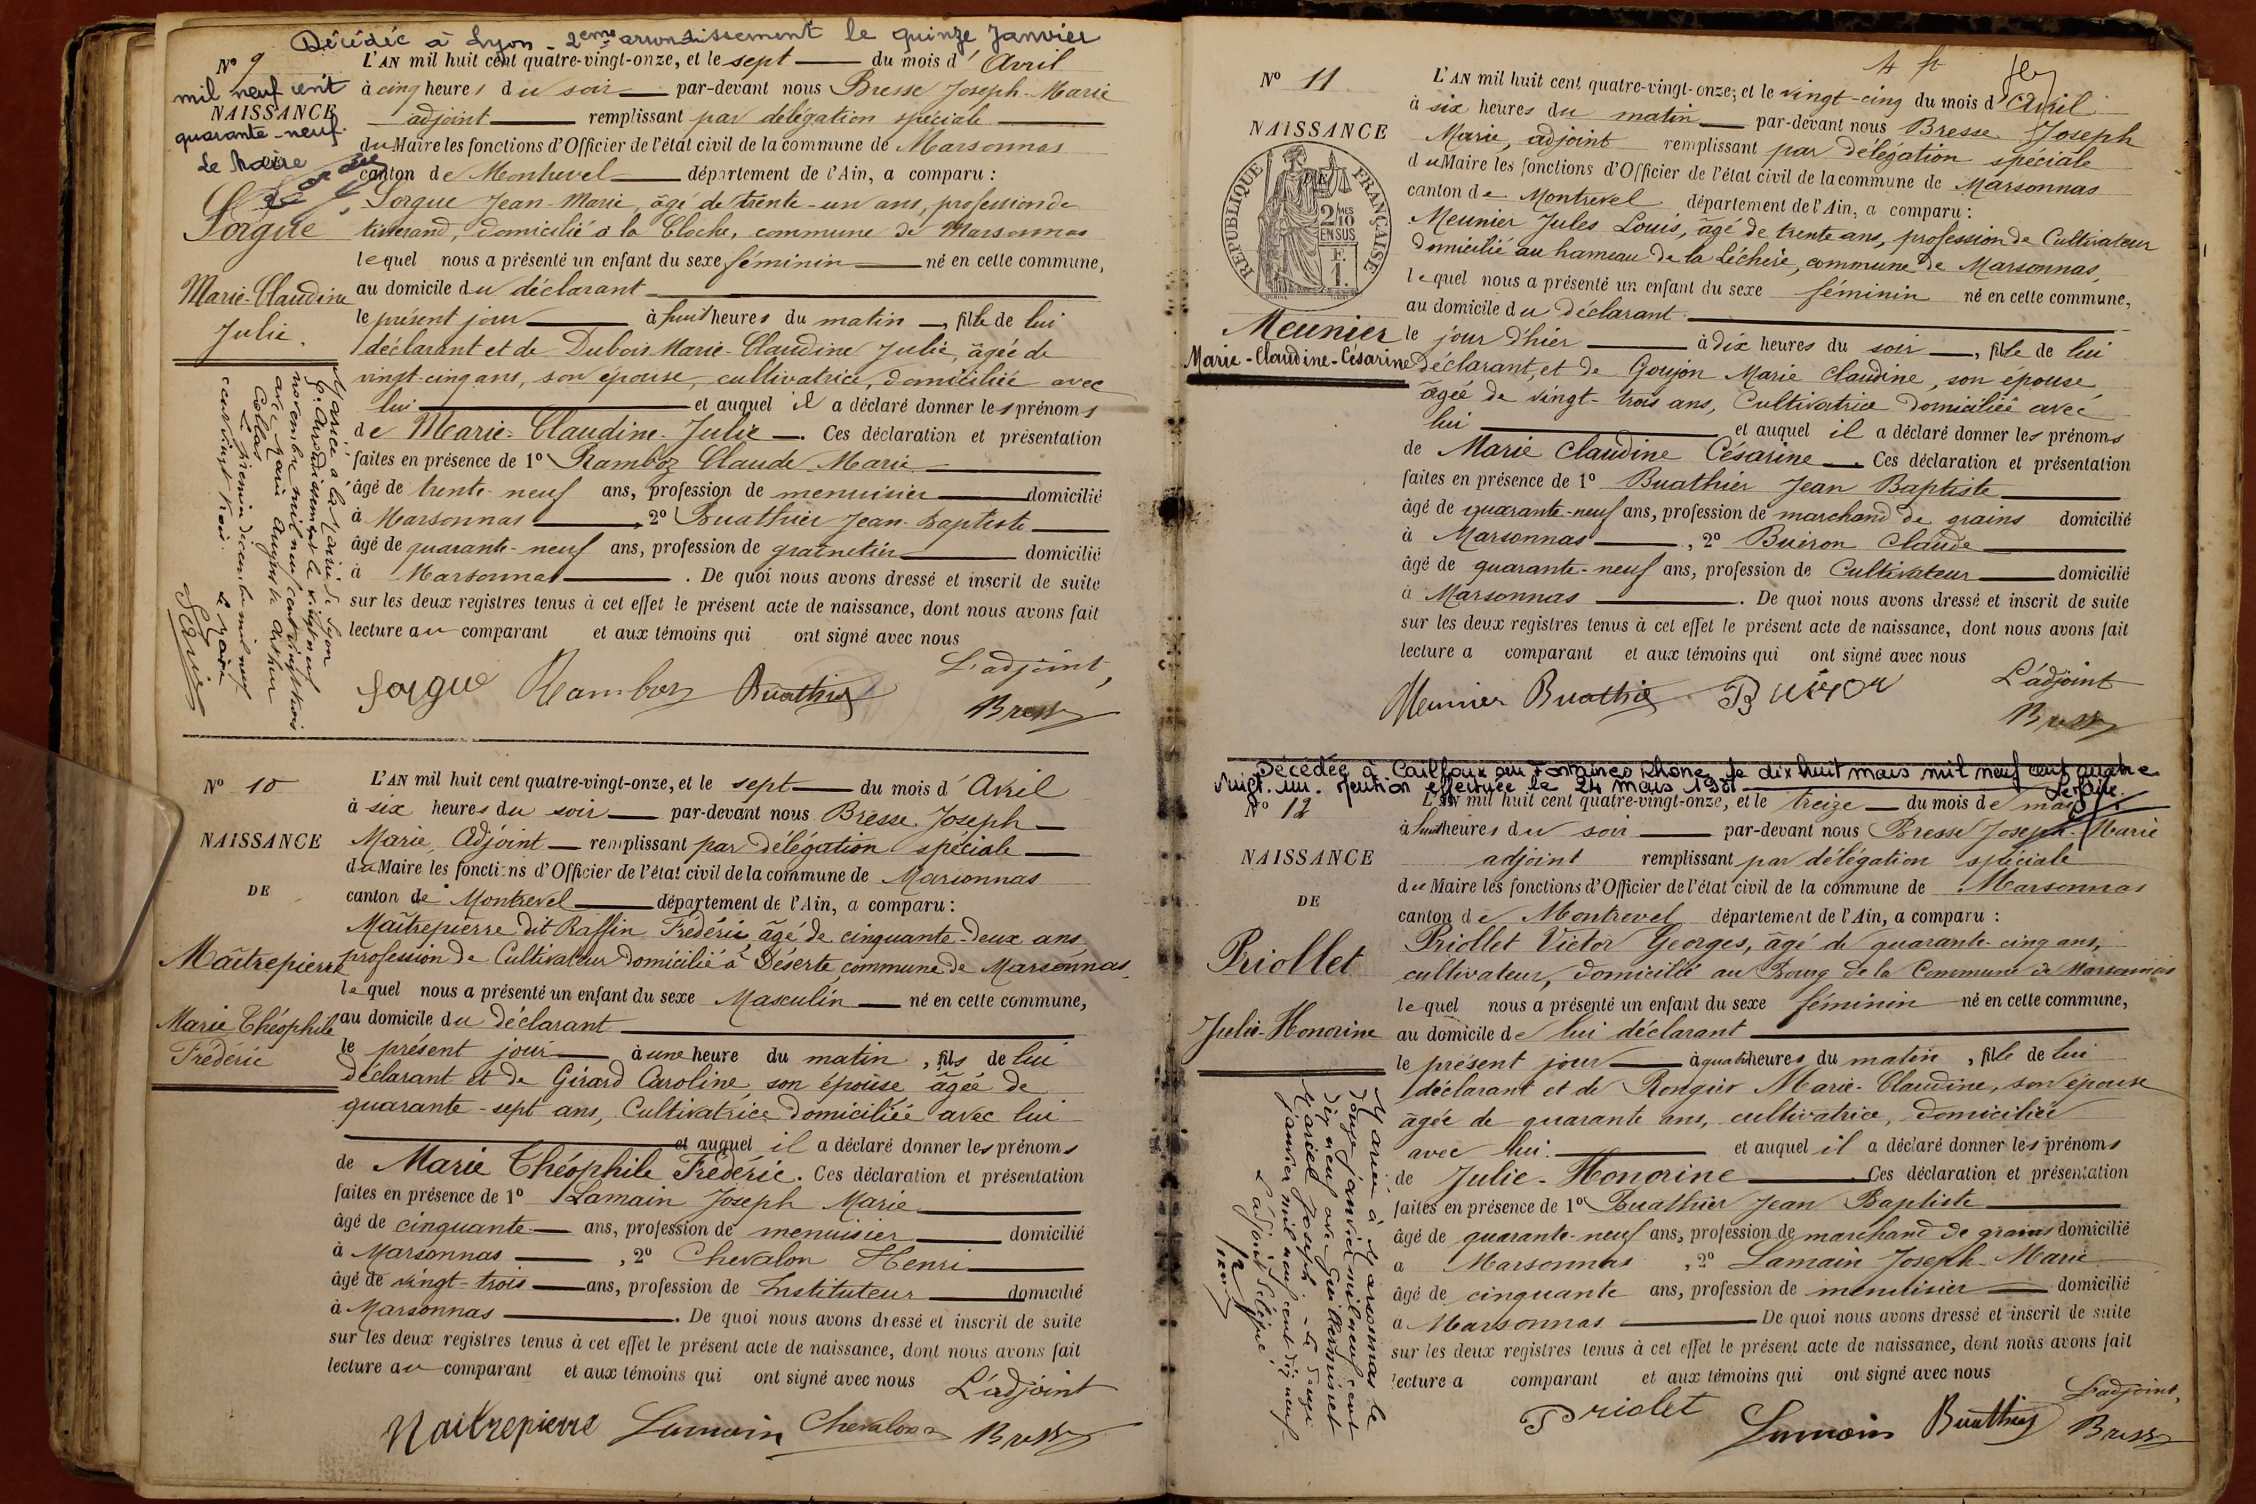 Décédée à Lyon - 2eme arrondissement le quinze Janvier
mil neuf cent
quarante-neuf.
Le Maire
N° 9
NAISSANCE
Sorgue
Marie-Claudine
Julie.
L'AN mil huit cent quatre-vingt-onze, et le sept du mois d'Avril
à cinq heures du soir par-devant nous Bresse Joseph-Marie
adjoint remplissant par délégation spéciale
du Maire les fonctions d'Officier de l'état civil de la commune de Marsonnas
canton de Montrevel département de l'Ain, a comparu :
Sorgue Jean-Marie, âgé de trente-un ans, profession de
tisserand, domicilié à la Cloche, commune de Marsonnas
lequel nous a présenté un enfant du sexe féminin né en cette commune,
au domicile du déclarant
le présent jour à huit heures du matin, fille de lui
déclarant et de Dubois Marie-Claudine Julie, âgée de
vingt-cinq ans, son épouse, cultivatrice, domiciliée avec
lui et auquel il a déclaré donner les prénoms
de Marie-Claudine-Julie. Ces déclaration et présentation
faites en présence de 1° Ramboz Claude Marie
âgé de trente-neuf ans, profession de menuisier domicilié
à Marsonnas, 2° Buathier Jean-Baptiste
âgé de quarante-neuf ans, profession de grainetier domicilié
à Marsonnas. De quoi nous avons dressé et inscrit de suite
sur les deux registres tenus à cet effet le présent acte de naissance, dont nous avons fait
lecture au comparant et aux témoins qui ont signé avec nous
L'adjoint,
Sorgue Ramboz Buathier Bresse
Mariée à la Mairie de Lyon
arrondissement le vingt neuf
novembre mil neuf cent vingt trois
avec
Collas
Le premier décembre mil neuf
cent vingt trois. Le Maire
N° 10
NAISSANCE
DE
Maîtrepierre
Marie Théophile
Frédéric
L'AN mil huit cent quatre-vingt-onze, et le sept du mois d'Avril
à six heures du soir par-devant nous Bresse Joseph
Marie, Adjoint remplissant par délégation spéciale
du Maire les fonctions d'Officier de l'état civil de la commune de Marsonnas
canton de Montrevel département de l'Ain, a comparu :
Maîtrepierre dit Raffin Frédéric, âgé de cinquante-deux ans,
profession de Cultivateur domicilié à Déserte commune de Marsonnas
lequel nous a présenté un enfant du sexe Masculin né en cette commune,
au domicile du déclarant
le présent jour à une heure du matin, fils de lui
déclarant et de Girard Caroline, son épouse âgée de
quarante-sept ans, Cultivatrice domiciliée avec lui
et auquel il a déclaré donner les prénoms
de Marie Théophile Frédéric. Ces déclaration et présentation
faites en présence de 1° Lamain Joseph Marie
âgé de cinquante ans, profession de menuisier domicilié
à Marsonnas, 2° Chevalon Henri
âgé de vingt-trois ans, profession de Instituteur domicilié
à Marsonnas. De quoi nous avons dressé et inscrit de suite
sur les deux registres tenus à cet effet le présent acte de naissance, dont nous avons fait
lecture au comparant et aux témoins qui ont signé avec nous
L'adjoint
Maitrepierre Lamain Chevalon Bresse
N° 11
NAISSANCE
REPUBLIQUE FRANÇAISE
2 MES
10
EN SUS
Meunier
Marie-Claudine-Césarine
L'AN mil huit cent quatre-vingt-onze, et le vingt-cinq du mois d'Avril
à six heures du matin par-devant nous Bresse Joseph
Marie, adjoint remplissant par délégation spéciale
du Maire les fonctions d'Officier de l'état civil de la commune de Marsonnas
canton de Montrevel département de l'Ain, a comparu :
Meunier Jules Louis, âgé de trente ans, profession de Cultivateur
domicilié au hameau de la Léchère, commune de Marsonnas,
lequel nous a présenté un enfant du sexe féminin né en cette commune,
au domicile du déclarant
le jour d'hier à dix heures du soir, fille de lui
déclarant, et de Goujon Marie Claudine, son épouse
âgée de vingt-trois ans, Cultivatrice domiciliée avec
lui et auquel il a déclaré donner les prénoms
de Marie Claudine Césarine. Ces déclaration et présentation
faites en présence de 1° Buathier Jean Baptiste
âgé de quarante-neuf ans, profession de marchand de grains domicilié
à Marsonnas, 2° Buiron Claude
âgé de quarante-neuf ans, profession de Cultivateur domicilié
à Marsonnas. De quoi nous avons dressé et inscrit de suite
sur les deux registres tenus à cet effet le présent acte de naissance, dont nous avons fait
lecture a comparant et aux témoins qui ont signé avec nous
L'adjoint
Meunier Buathier Buiron Bresse
Décédée à Cailloux sur Fontaines Rhône le dix huit mars mil neuf cent quatre
vingt. un. Mention effectuée le 24 mars 1981
N° 12
NAISSANCE
DE
Priollet
Julie-Honorine
L'AN mil huit cent quatre-vingt-onze, et le treize du mois de mai
à huit heures du soir par-devant nous Bresse Joseph-Marie
adjoint remplissant par délégation spéciale
du Maire les fonctions d'Officier de l'état civil de la commune de Marsonnas
canton de Montrevel département de l'Ain, a comparu :
Priollet Victor Georges, âgé de quarante-cinq ans,
cultivateur, domicilié au Bourg de la Commune de Marsonnas
lequel nous a présenté un enfant du sexe féminin né en cette commune,
au domicile de lui déclarant
le présent jour à quatre heures du matin, fille de lui
déclarant et de Rongier Marie-Claudine, son épouse
âgée de quarante ans, cultivatrice, domiciliée
avec lui. et auquel il a déclaré donner les prénoms
de Julie-Honorine. Ces déclaration et présentation
faites en présence de 1° Buathier Jean Baptiste
âgé de quarante-neuf ans, profession de marchand de grains domicilié
à Marsonnas, 2° Lamain Joseph-Marie
âgé de cinquante ans, profession de menuisier domicilié
à Marsonnas De quoi nous avons dressé et inscrit de suite
sur les deux registres tenus à cet effet le présent acte de naissance, dont nous avons fait
lecture a comparant et aux témoins qui ont signé avec nous
L'adjoint,
Priolet Lamain Buathier Bresse
Mariée à Marsonnas le
douze janvier mil neuf cent
dix neuf avec Guillerminet
Marcel Joseph. Le
janvier mil neuf cent dix neuf
L'adjoint délégué